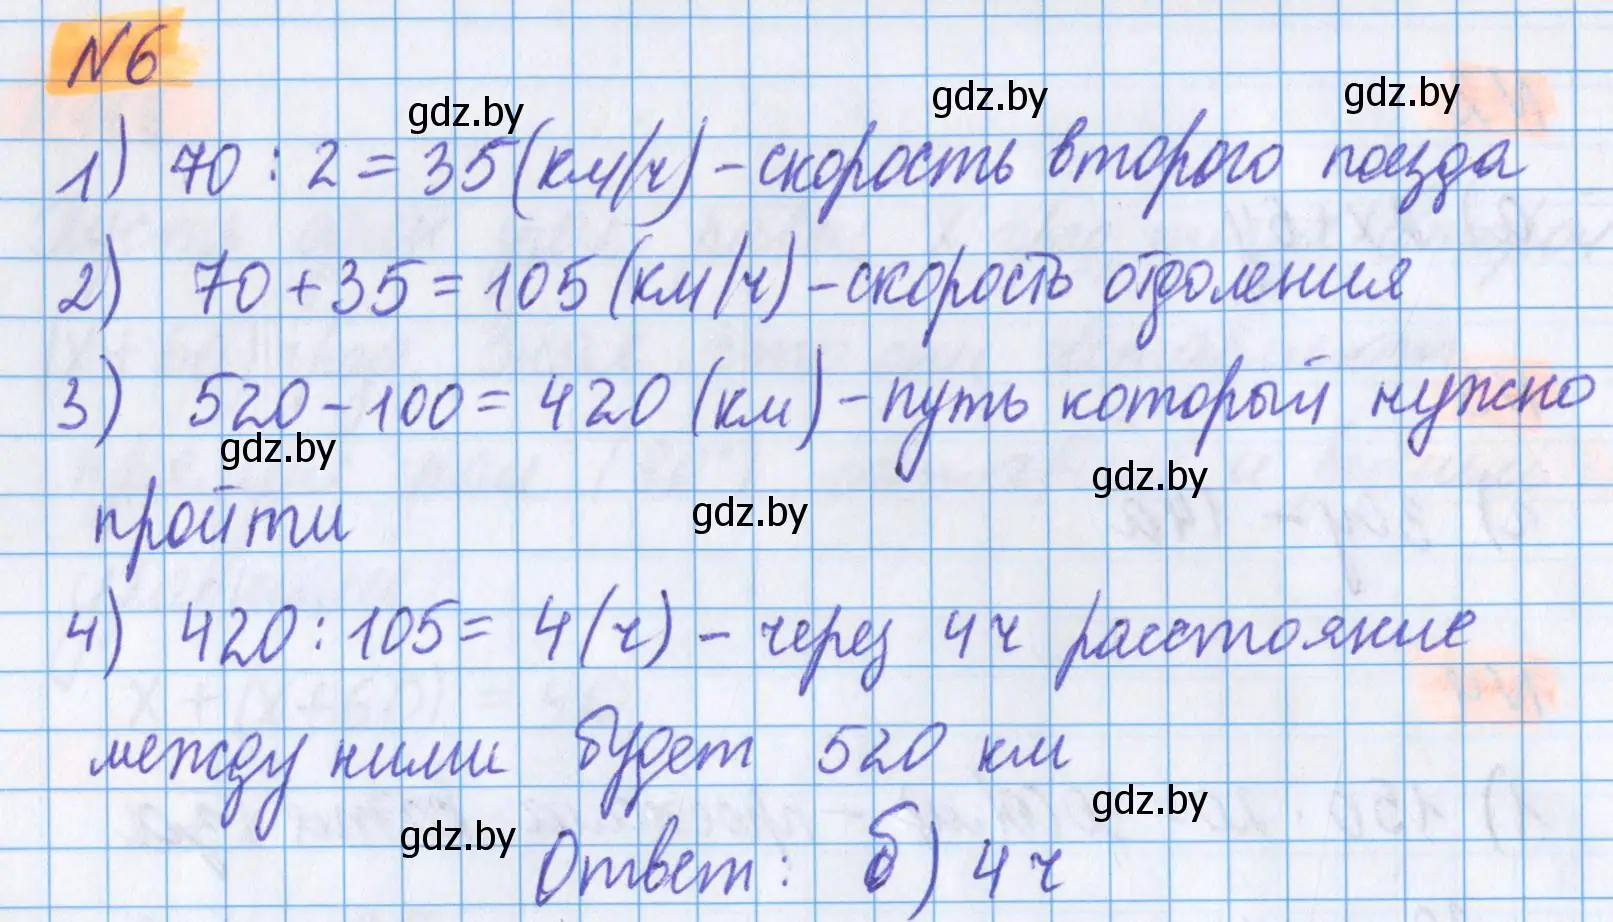 N6
gdz.by gdz.by gdz.by
1) 70 : 2 = 35 (км/ч) - скорость второго поезда
2) 70 + 35 = 105 (км/ч) - скорость отдоления
3) 520 - 100 = 420 (км) - путь который нужно
gdz.by gdz.by
пройти
gdz.by
4) 420 : 105 = 4 (ч) - через 4 ч расстояние
между ними будет 520 км
gdz.by gdz.by
Ответ: б) 4 ч